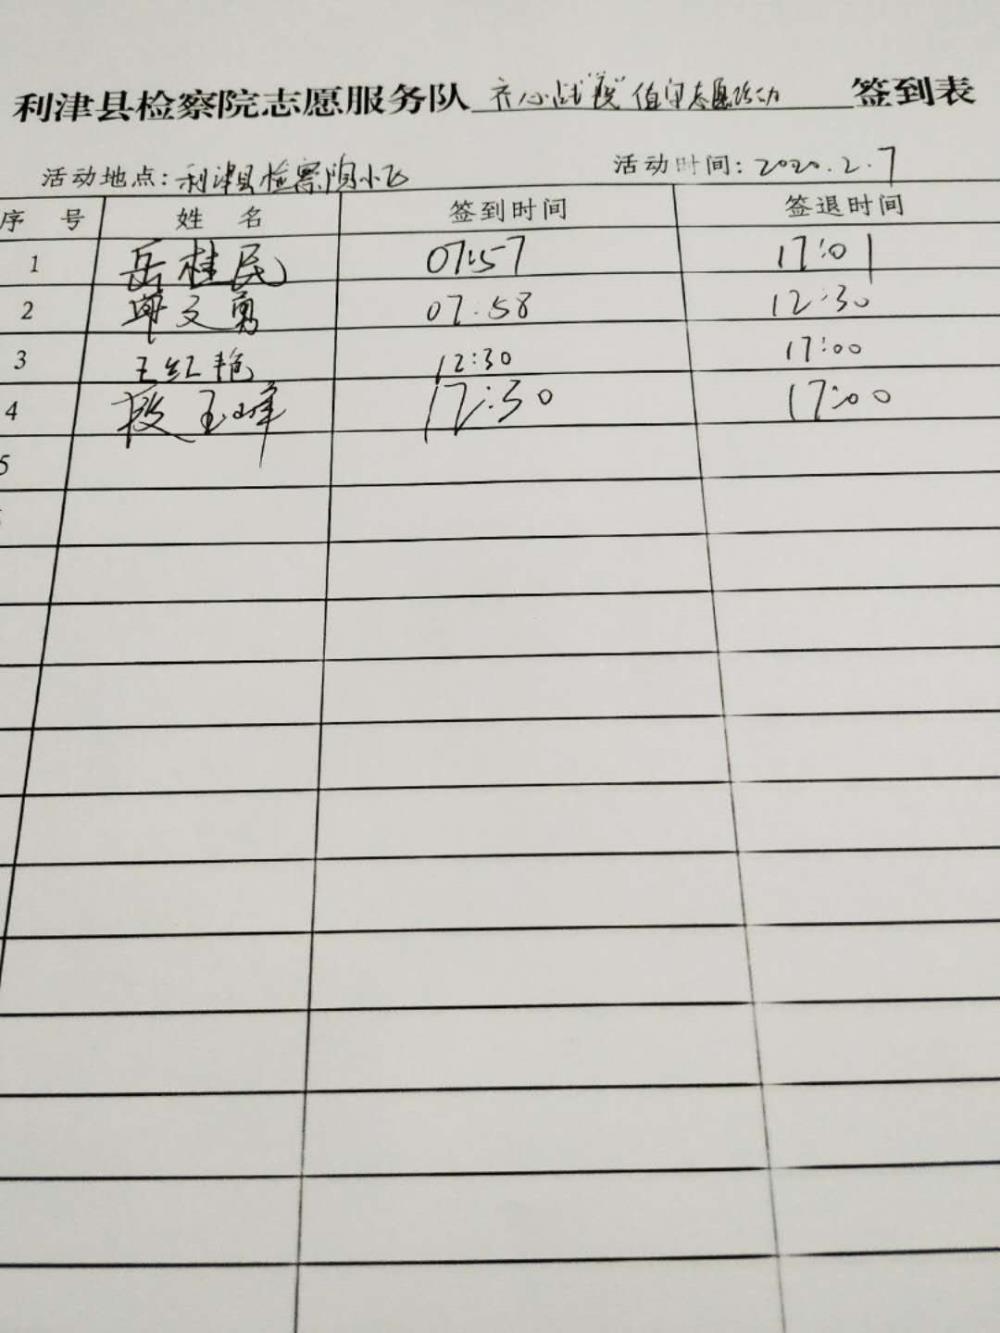 利津县检察院志愿服务队 齐心战"疫"值守志愿活动 签到表
活动地点:利津县检察院小区 活动时间:2020.2.7
序 号 姓 名 签到时间 签退时间
1 岳桂民 07:57 17:01
2 文勇 07:58 12:30
3 王红艳 12:30 17:00
4 段玉峰 12:30 17:00
5